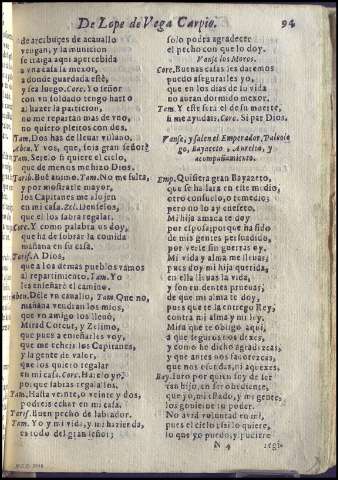 De Lope de Vega Carpio. 94
de arcabuzes de acauallo
vengan, y la municion
se traiga aqui apercebida
a vna casa la mexor,
a donde guardada esté,
y sea luego. Core. Yo señor
con vn soldado tengo harto
al hazer la particion,
no me repartan mas de vno,
no quiero pleitos con dos.
Tam. Dos has de lleuar villano.
Abra. Y vos, que, sois gran señor?
Tam. Serelo si quiere el cielo,
que de menos me hizo Dios.
Tarif. Buē animo. Tam. No me falta,
y por mostrarle mayor,
los Capitanes me alojen
en mi casa. Zel. Denselos,
que el los sabra regalar.
Core. Y como palabra os doy,
que ha de sobrar la comida
mañana en su casa.
Tarif. A Dios,
que a los demas pueblos vamos
al repartimiento. Tam. Yo
les enseñarè el camino.
Abra. Dèle vn cauallo, Tam. Que no,
mañana vendran los mios,
que vn amigo los lleuò,
Mirad Corcut, y Zelimo,
que pues a enseñarles voy,
que me echeis los Capitanes,
y la gente de valor,
que los quiero regalar
en mi casa. Core. Harelo yo,
porque sabras regalallos.
Tam. Hasta veinte, o veinte y dos,
podreis echar en mi casa.
Tarif. Buen pecho de labrador.
Tam. Yo y mi vida, y mi hazienda,
es todo del gran señor;
solo podra agradecer
el pecho con que lo doy.
Vanse los Moros.
Core. Buenas casas les daremos
puedo assegurarles yo,
que en los dias de su vida
no auran dormido mexor.
Tam. Y este serà el de su muerte,
si me ayudais. Core. Si par Dios.
Vanse, y salen el Emperador, Paleologo,
Bayaceto y Aurelio, y
acompañamiento.
Emp. Quisiera gran Bayazeto,
que se hallara en este medio,
otro consuelo, o remedio;
pero no lo ay en efeto.
Mi hija amada te doy
por esposa; porque ha sido
de mis gentes persuadido,
por verse sin guerras oy.
Mi vida y alma me lleuas;
pues doy mi hija querida,
en ella lleuas la vida,
y son euidentes prueuas;
de que mi alma te doy,
pues que te la entrego Rey,
contra mi alma y mi ley.
Mira que te obligo aqui,
a que seguros nos dexes,
y como he dicho agradezcas,
y que antes nos fauorezcas,
que nos ofendas, ni aquexes.
Bay. Iuro por quien soy de ser
tan hijo, en ser obediente,
que yo, mi estado, y mi gente,
los gouierne tu poder.
No aurà voluntad en mi,
pues el cielo, si lo quiere,
lo que yo puedo, y pudiere
N 4